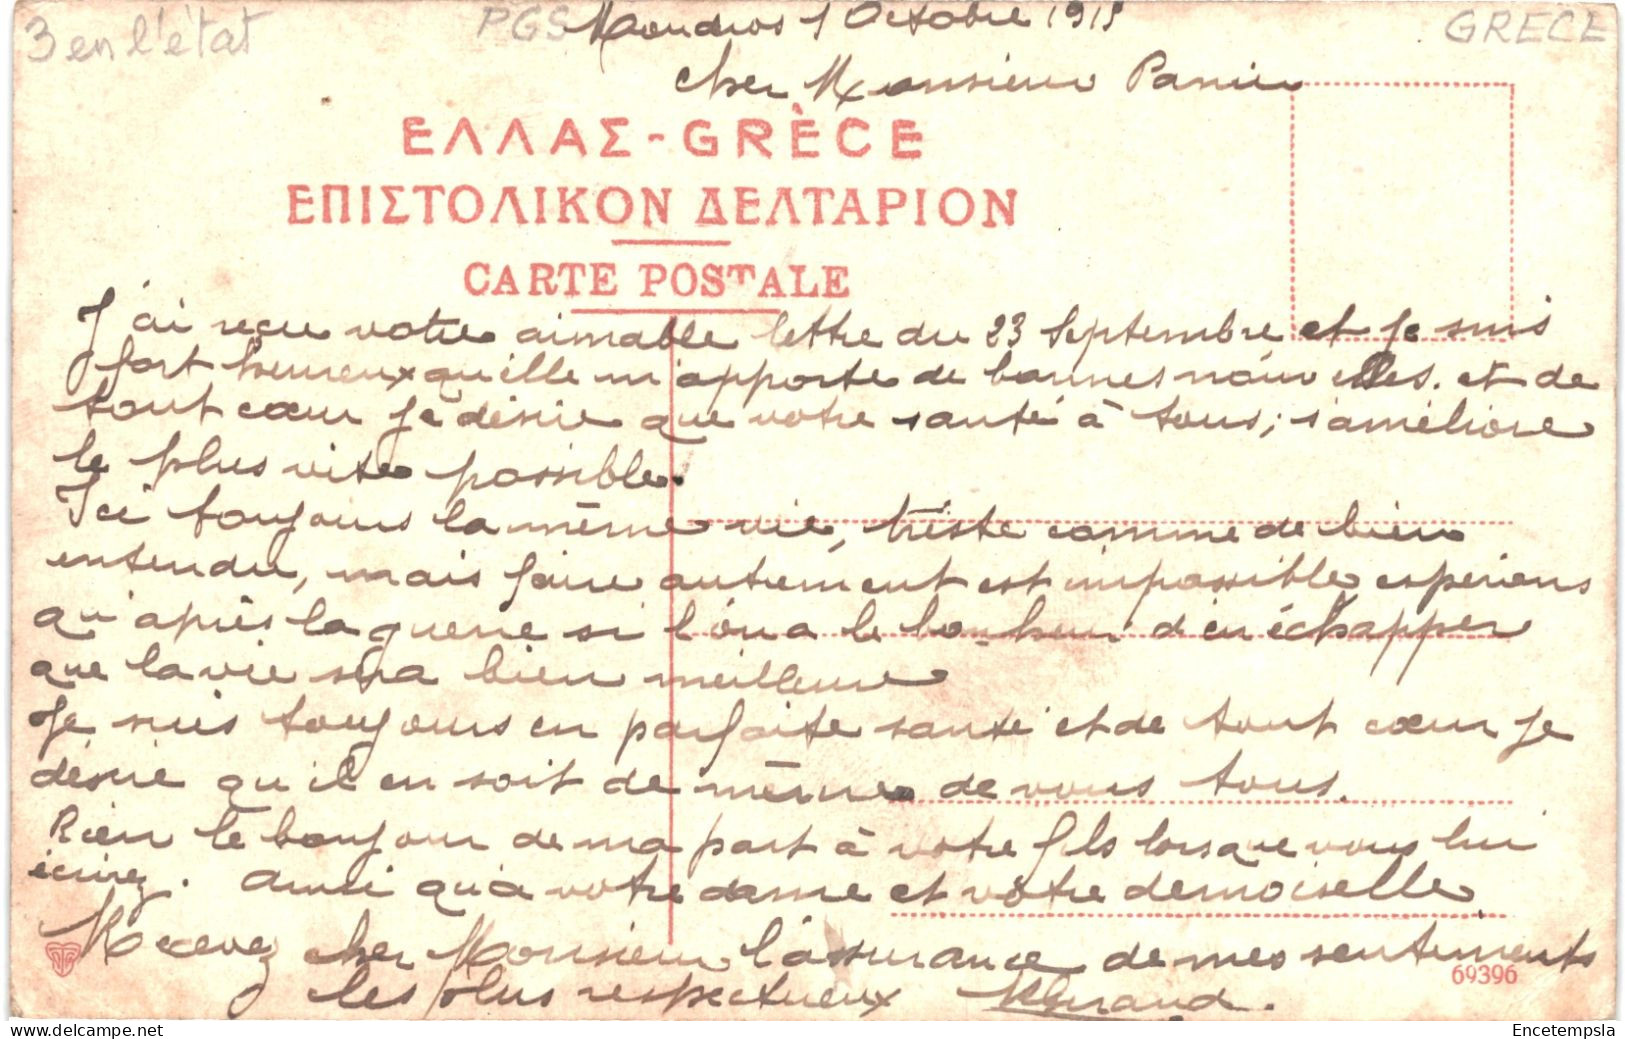 3 en l'état
PGS
GRECE
Moudros 1 Octobre 1915
cher Monsieur
ΕΛΛΑΣ - GRÈCE
ΕΠΙΣΤΟΛΙΚΟΝ ΔΕΛΤΑΡΙΟΝ
CARTE POSTALE
J'ai reçu votre aimable lettre du 23 Septembre et je suis
fort heureux qu'elle m'apporte de bonnes nouvelles. et de
tout cœur je désire que votre santé à tous, s'améliore
le plus vite possible.
Ici toujours la même vie, triste comme de bien
entendu, mais faire autrement est impossible esperons
qu'après la guerre si l'on a le bonheur d'en échapper
que la vie sera bien meilleure
Je suis toujours en parfaite santé et de tout cœur je
désire qu'il en soit de même de vous tous.
Bien le bonjour de ma part à votre fils lorsque vous lui
écrirez. Ainsi qu'à votre dame et votre demoiselle.
Recevez cher Monsieur l'assurance de mes sentiments
les plus respectueux
69396
Encetempsla